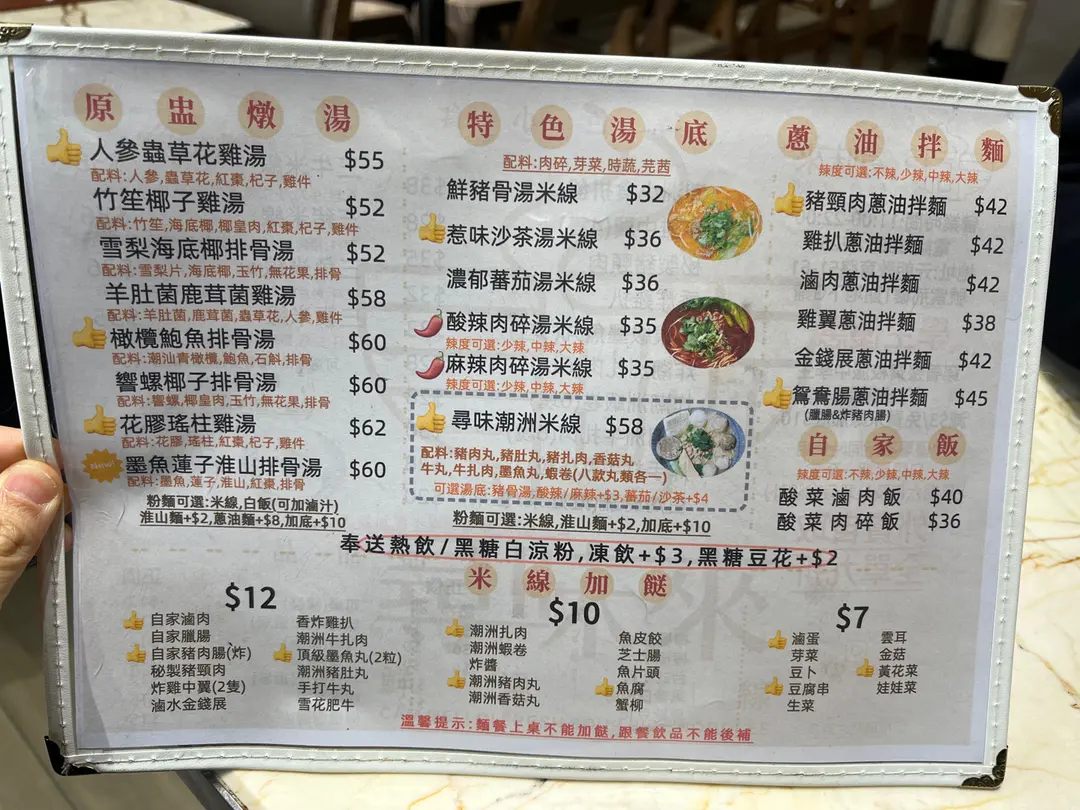 原盅燉湯
人參蟲草花雞湯 $55
配料:人參,蟲草花,紅棗,杞子,雞件
竹笙椰子雞湯 $52
配料:竹笙,海底椰,椰皇肉,紅棗,杞子,雞件
雪梨海底椰排骨湯 $52
配料:雪梨片,海底椰,玉竹,無花果,排骨
羊肚菌鹿茸菌雞湯 $58
配料:羊肚菌,鹿茸菌,蟲草花,人參,雞件
橄欖鮑魚排骨湯 $60
配料:潮汕青橄欖,鮑魚,石斛,排骨
響螺椰子排骨湯 $60
配料:響螺,椰皇肉,玉竹,無花果,排骨
花膠瑤柱雞湯 $62
配料:花膠,瑤柱,紅棗,杞子,雞件
New!
墨魚蓮子淮山排骨湯 $60
配料:墨魚,蓮子,淮山,紅棗,排骨
粉麵可選:米線,白飯(可加滷汁)
淮山麵+$2,蔥油麵+$8,加底+$10
特色湯底
配料:肉碎,芽菜,時蔬,芫茜
鮮豬骨湯米線 $32
惹味沙茶湯米線 $36
濃郁蕃茄湯米線 $36
酸辣肉碎湯米線 $35
辣度可選:少辣,中辣,大辣
麻辣肉碎湯米線 $35
辣度可選:少辣,中辣,大辣
尋味潮洲米線 $58
配料:豬肉丸,豬肚丸,豬扎肉,香菇丸
牛丸,牛扎肉,墨魚丸,蝦卷(八款丸類各一)
可選湯底:豬骨湯,酸辣/麻辣+$3,蕃茄/沙茶+$4
粉麵可選:米線,淮山麵+$2,加底+$10
蔥油拌麵
辣度可選:不辣,少辣,中辣,大辣
豬頸肉蔥油拌麵 $42
雞扒蔥油拌麵 $42
滷肉蔥油拌麵 $42
雞翼蔥油拌麵 $38
金錢展蔥油拌麵 $42
鴛鴦腸蔥油拌麵 $45
(臘腸&炸豬肉腸)
自家飯
辣度可選:不辣,少辣,中辣,大辣
酸菜滷肉飯 $40
酸菜肉碎飯 $36
奉送熱飲/黑糖白涼粉,凍飲+$3,黑糖豆花+$2
米線加餸
$12
自家滷肉
自家臘腸
自家豬肉腸(炸)
秘製豬頸肉
炸雞中翼(2隻)
滷水金錢展
香炸雞扒
潮洲牛扎肉
頂級墨魚丸(2粒)
潮洲豬肚丸
手打牛丸
雪花肥牛
$10
潮洲扎肉
潮洲蝦卷
炸醬
潮洲豬肉丸
潮洲香菇丸
魚皮餃
芝士腸
魚片頭
魚腐
蟹柳
$7
滷蛋
芽菜
豆卜
豆腐串
生菜
雲耳
金菇
黃花菜
娃娃菜
溫馨提示:麵餐上桌不能加餸,跟餐飲品不能後補